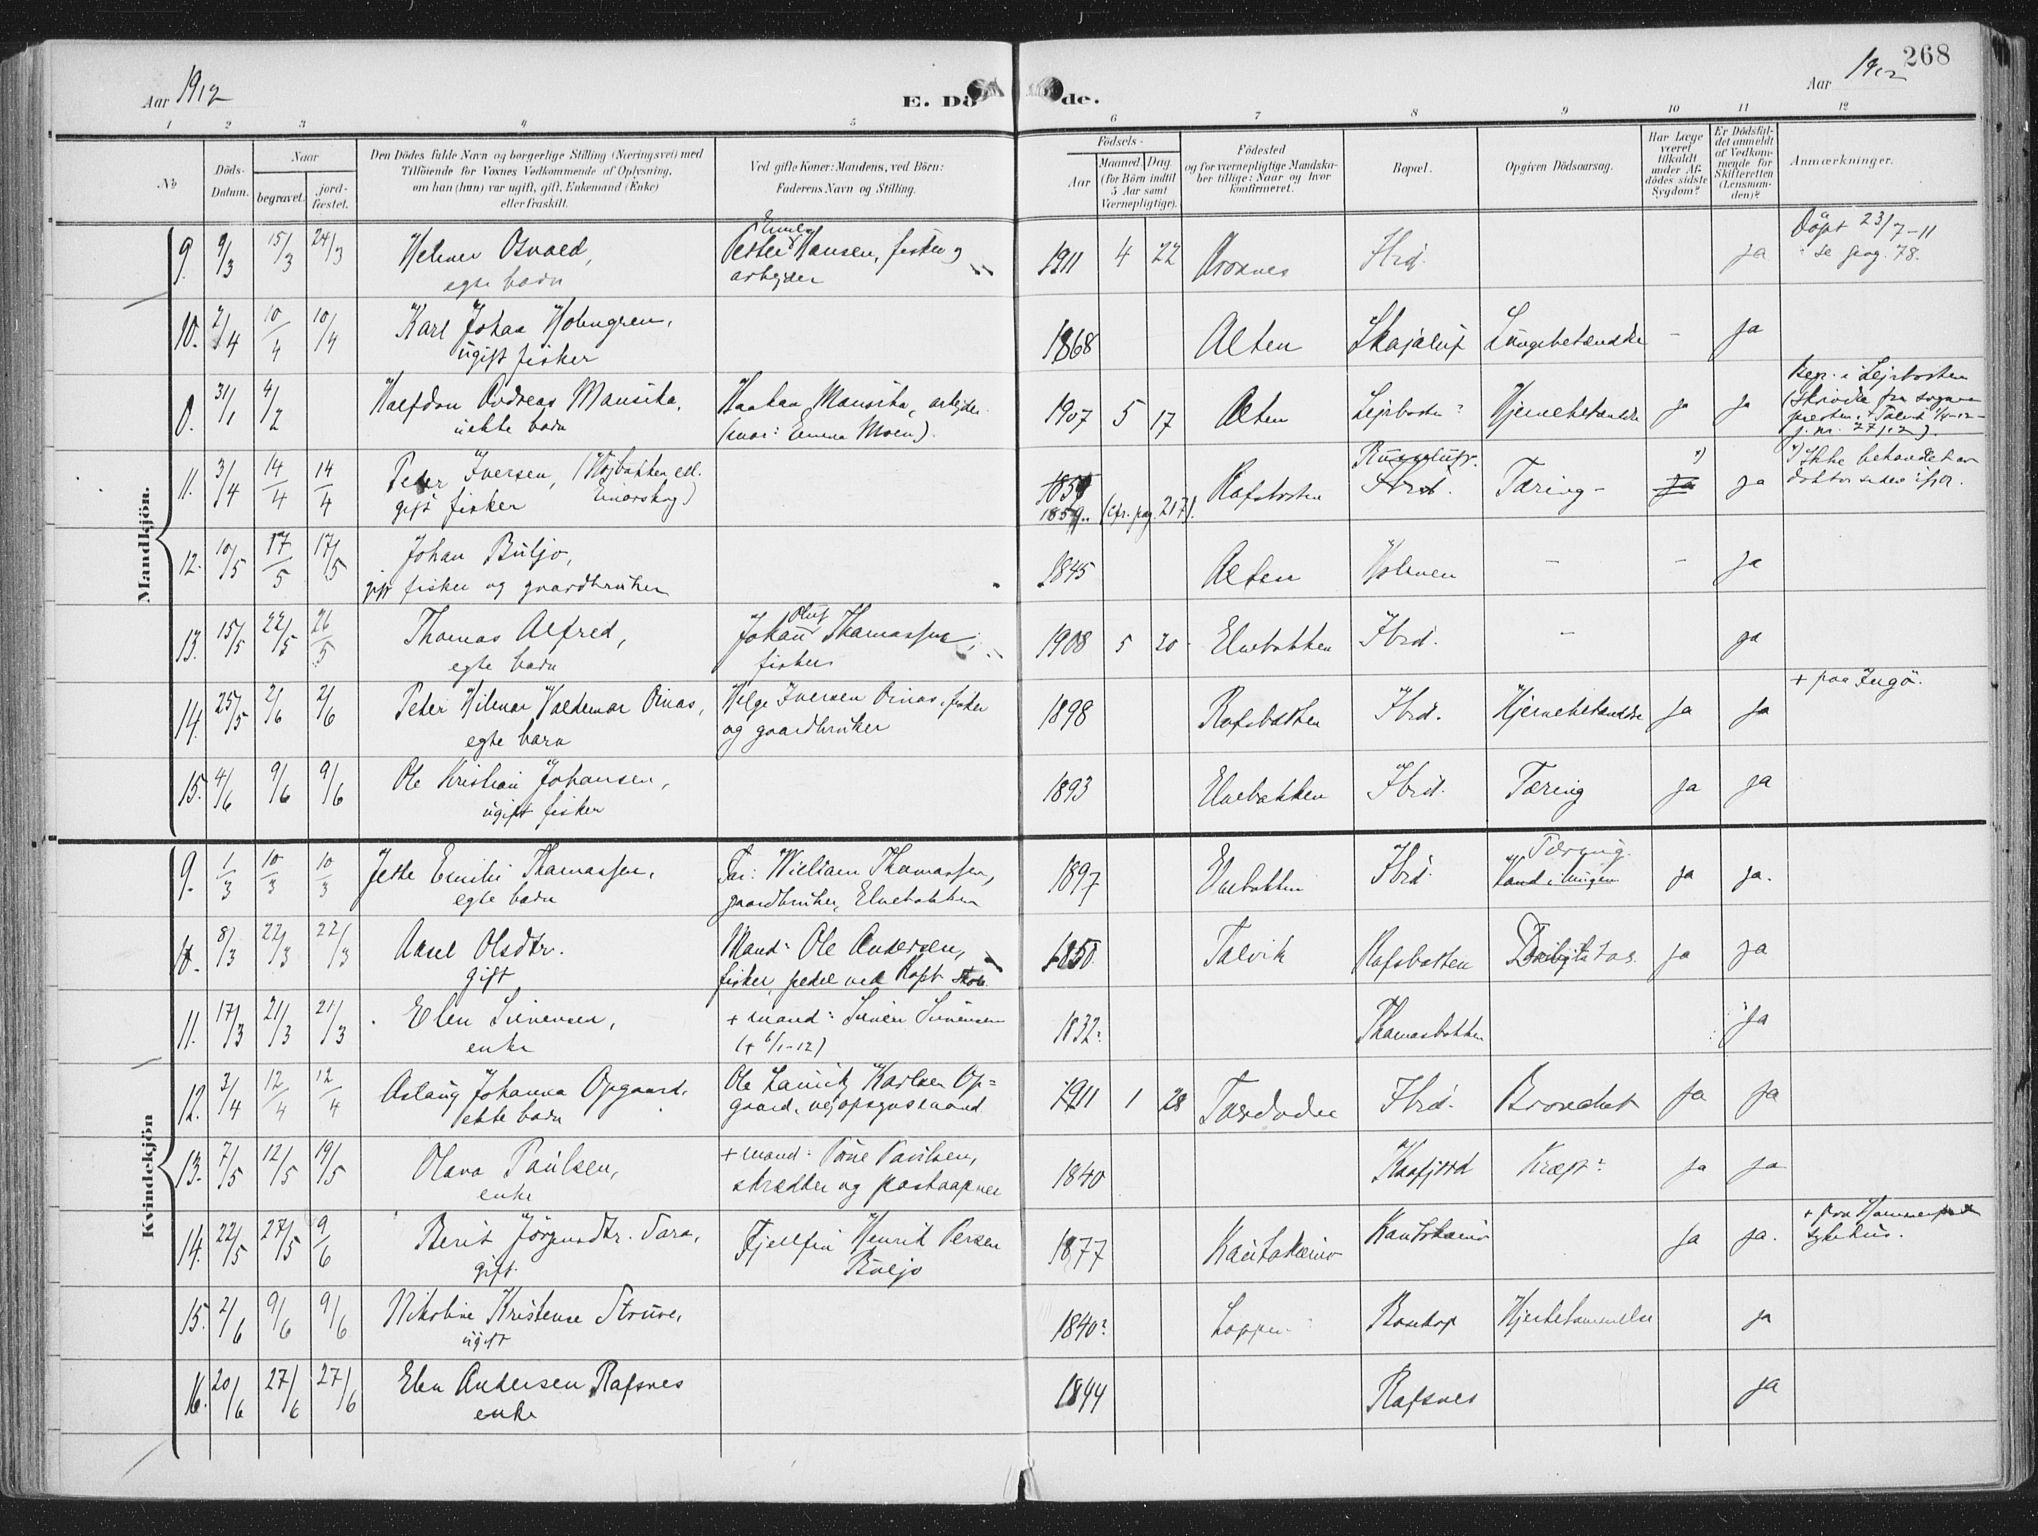 268
Aar 1912
E. Dö
de.
Aar 1912
1 2 3 4 5 6 7 8 9 10 11 12
No
Döds-Datum.
Naar
begravet.
jord-fæstet.
Den Dödes fulde Navn og borgerlige Stilling (Næringsvei) med
Tilföiende for Voxnes Vedkommende af Oplysning,
om han (hun) var ugift, gift, Enkemand (Enke)
eller fraskilt.
Ved gifte Koner: Mandens, ved Börn:
Faderens Navn og Stilling.
Födsels-
Aar
Maaned. Dag.
(for Börn indtil
5 Aar samt
Værnepligtige).
Födested
og for værnepligtige Mandska-
ber tillige: Naar og hvor
konfirmeret.
Bopæl.
Opgiven Dödsaarsag.
Har Læge
været
tilkaldt
under Af-
dödes sidste
Sygdom?
Er Dödsfal-
det anmeldt
af Vedkom-
mende for
Skifteretten
(Lensman-
den)?
Anmærkninger.
Mandkjön.
9. 9/3 15/3 24/3 Helmer Osvald, Petter Hansen, fisker og 1911 4 22 Kroknes Ibid. ja Döpt 23/7-11
egte barn arbejder se pag. 78.
10. 2/4 10/4 10/4 Karl Johan Holmgren, 1868 Alten Skajaluf Lungebetændelse - ja
ugift fisker
0. 31/1 4/2 Halfdan Andreas Mansika, Haakan Mansika, arbejder 1907 5 17 Alten Lejrbotn? Hjernebetændelse ja ja Begr. i Lejrbotten
uekte barn (mor: Emma Moen).
11. 3/4 14/4 14/4 Peter Iversen, (Højbakken el. 1859 Rafsbotten Ibid. Tæring - ja ja Ikke behandlet av
gift fisker Einarskog) 1859 (cfr. pag. 217).
12. 10/5 17/5 17/5 Johan Buljo, 1845 Alten Holmen - - ja
gift fisker og gaardbruker
13. 15/5 22/5 26/5 Thomas Alfred, Johan Oluf Thomassen, 1908 5 20 Elvebakken Ibid. - ja
egte barn fisker
14. 25/5 2/6 2/6 Peter Hilmar Valdemar Oinas, Helge Iversen Oinas, fisker 1898 Rafsbotten Ibid. Hjernebetændelse ja ja + paa Ingö.
egte barn og gaardbruker
15. 4/6 9/6 9/6 Ole Kristian Johansen, 1893 Elvebakken Ibid. Tæring ja ja
ugift fisker
Kvindekjön
9. 1/3 10/3 10/3 Jette Emilie Thomassen, Far: William Thomassen, 1897 Elvebakken Ibid. Tæring ja ja.
egte barn gaardbruker, Elvebakken Vand i lungen
10. 8/3 22/3 22/3 Aasel Olsdtr. Mand: Ole Andersen, 1850 Talvik Rafsbotten ja ja
gift fisker, pedel ved Rafsb. skole
11. 17/3 21/3 21/3 Elen Simensen, + mand: Simen Simensen 1832? Thomasbakken ja
enke (+ 6/1-12)
12. 3/4 12/4 12/4 Aslaug Johanna Opgaard, Ole Lauritz Karlsen Op= 1911 1 28 Tverelvdalen Ibid. Bronchit ja ja
ekte barn gaard, vejopsynsmand
13. 7/5 12/5 19/5 Olava Paulsen, + mand: Arne Paulsen, 1840 Kaafjord Kræft? ja ja
enke skrædder og postaapner
14. 22/5 27/5 9/6 Berit Jörgensdtr. Sara, Fjellfin Henrik Persen 1877 Kautokeino Kautokeino ja ja. + paa Hammerfest
gift. Buljo sykehus.
15. 2/6 9/6 9/6 Nikoline Kristense Struve, 1840? Loppen Bosekop Hjertelammelse ja
ugift
16. 20/6 27/6 27/6 Elen Andersen Rafsnes 1844 Rafsnes ja
enke